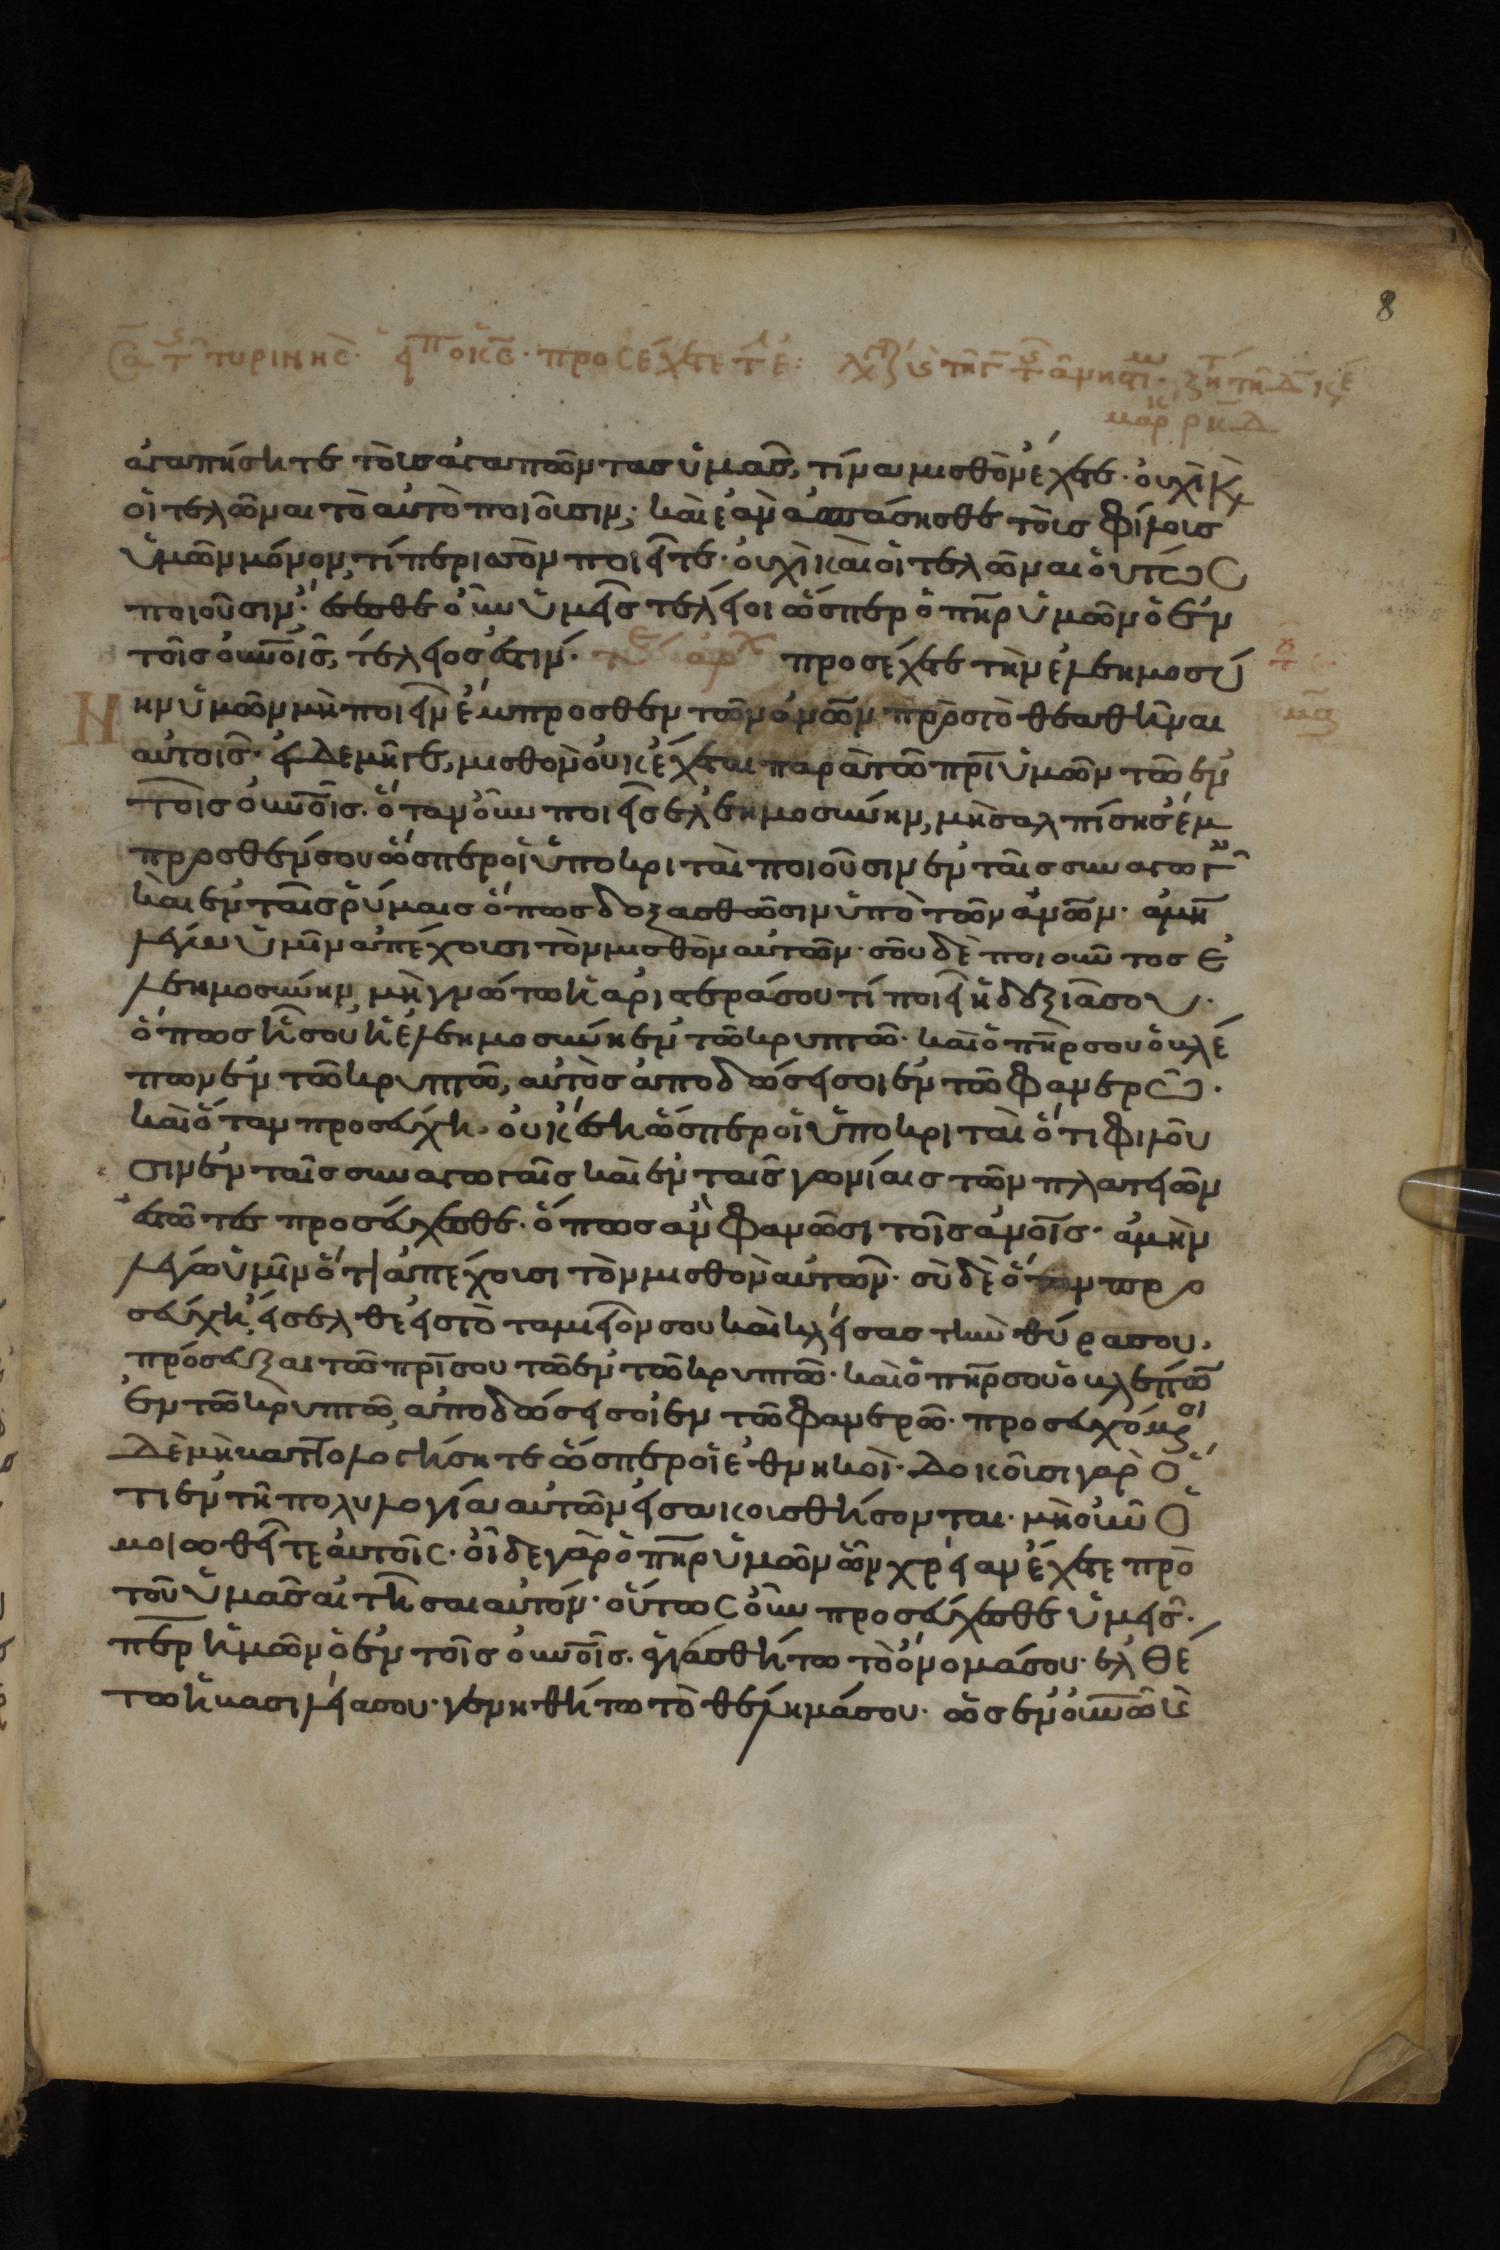 8
τυρινης· προσέχετε
ἀγαπήσητε τοὺς ἀγαπῶντας ὑμᾶς, τίνα μισθὸν ἔχετε· οὐχὶ κ(αὶ)
οἱ τελῶναι τὸ αὐτὸ ποιοῦσιν; καὶ ἐὰν ἀσπάσησθε τοὺς φίλους
ὑμῶν μόνον, τί περισσὸν ποιεῖτε· οὐχὶ καὶ οἱ τελῶναι οὕτως
ποιοῦσιν; ἔσεσθε οὖν ὑμεῖς τέλειοι ὥσπερ ὁ πηρ ὑμῶν ὁ ἐν
τοῖς οὐνοῖς, τέλειός ἐστιν· προσέχετε τὴν ἐλεημοσύ
νην ὑμῶν μὴ ποιεῖν ἔμπροσθεν τῶν ἀνων πρὸς τὸ θεαθῆναι
αὐτοῖς· εἰ δὲ μήγε, μισθὸν οὐκ ἔχεται παρὰ τῶ πρι ὑμῶν τῶ ἐν
τοῖς οὐνοῖς. ὅταν οὖν ποιεῖς ἐλεημοσύνην, μὴ σαλπίσης ἔμ
προσθέν σου ὥσπερ οἱ ὑποκριταὶ ποιοῦσιν ἐν ταῖς συναγωγ
καὶ ἐν ταῖς ῥύμαις ὅπως δοξασθῶσιν ὑπὸ τῶν ἀνων· ἀμη
λέγω ὑμῖν ἀπέχουσι τὸν μισθὸν αὐτῶν· σοῦ δὲ ποιοῦντος ἐ
λεημοσύνην, μὴ γνώτω ἡ ἀριστερά σου τί ποιεῖ ἡ δεξιά σου.
ὅπως ἦ σου ἡ ἐλεημοσύνη ἐν τῶ κρυπτῶ· καὶ ὁ πηρ σου ὁ βλέ
πων ἐν τῶ κρυπτῶ, αὐτὸς ἀποδώσει σοι ἐν τῶ φανερῶ.
καὶ ὅταν προσεύχη, οὐκ ἔση ὥσπερ οἱ ὑποκριταὶ ὅτι φιλοῦ
σιν ἐν ταῖς συναγωγαῖς καὶ ἐν ταῖς γωνίαις τῶν πλατειῶν
ἑστῶτες προσεύχεσθε· ὅπως ἂν φανῶσι τοῖς ἀνοις· ἀμὴν
λέγω ὑμῖν ὅτι ἀπέχουσι τὸν μισθὸν αὐτῶν· σὺ δὲ ὅταν προ
σεύχη, εἴσελθε εἰς τὸ ταμιεῖον σου καὶ κλείσας τὴν θύρα σου,
πρόσευξαι τῶ πρι σου τῶ ἐν τῶ κρυπτῶ· καὶ ὁ πηρ σου ὁ βλέπω
ἐν τῶ κρυπτῶ, ἀποδώσει σοι ἐν τῶ φανερῶ· προσευχόμ
δὲ μὴ βαττολογήσητε ὥσπερ οἱ ἐθνηκοὶ· δοκοῦσι γὰρ ὅ
τι ἐν τῆ πολυλογία αὐτῶν εἰσακουσθήσονται· μὴ οὖν ὁ
μοιωθεῖτε αὐτοῖς· οἶδε γὰρ ὁ πηρ ὑμῶν ὧν χρείαν ἔχετε πρὸ
τοῦ ὑμᾶς αἰτῆσαι αὐτόν· οὕτως οὖν προσεύχεσθε ὑμεῖς·
περ ἡμῶν ὁ ἐν τοῖς οὐνοῖς. ἁγιασθήτω τὸ ὄνομά σου· ἐλθέ
τω ἡ βασιλεία σου· γενηθήτω τὸ θέλημά σου. ὡς ἐν οὐνῶ κ(αὶ)